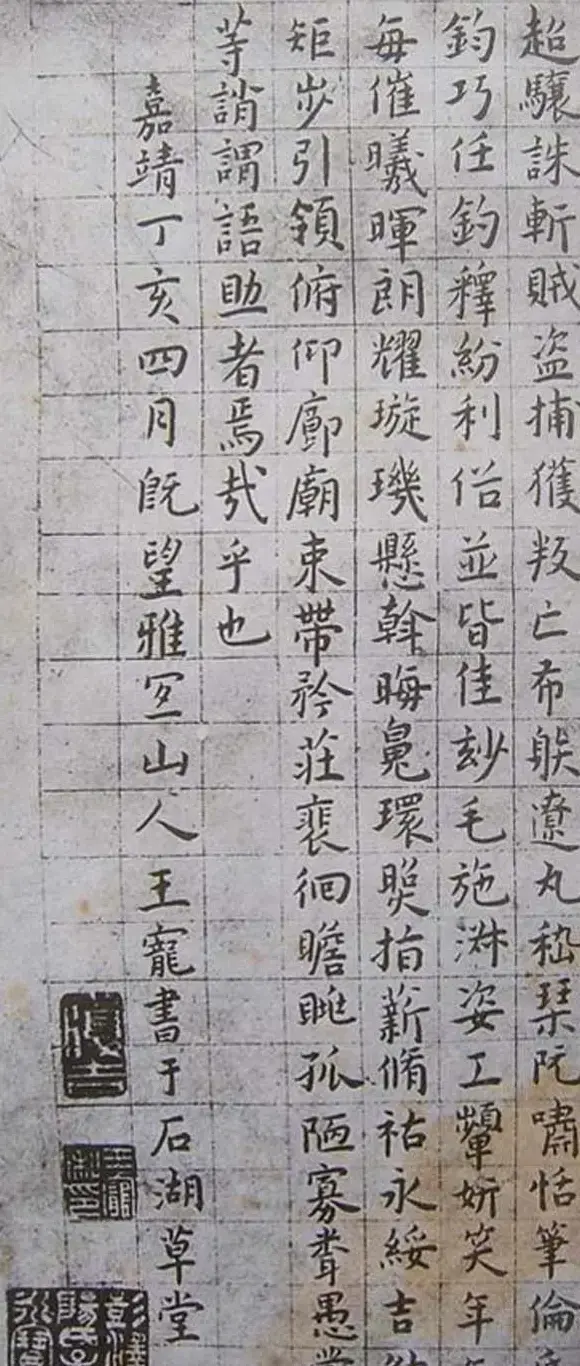 超驤誅斬賊盜捕獲叛亡布䠶遼丸嵇琹阮嘯恬筆倫
鈞巧任釣釋紛利俗並皆佳玅毛施淑姿工顰妍笑年
每催曦暉朗耀璇璣懸斡晦魄環照指薪脩祜永綏吉
矩步引領俯仰廊廟束帶矜莊裵徊瞻眺孤陋寡聞愚蒙
等誚謂語助者焉哉乎也
嘉靖丁亥四月既望雅宜山人王寵書于石湖草堂
履吉